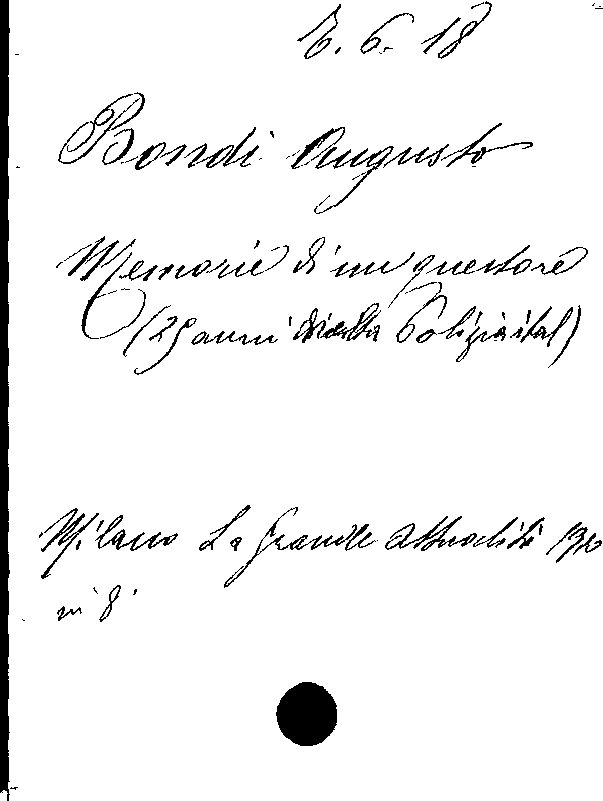 E. 6. 18
Bondi Augusto
Memorie di un questore
(25 anni nella Polizia ital)
Milano La Grande Attualità
in 8°